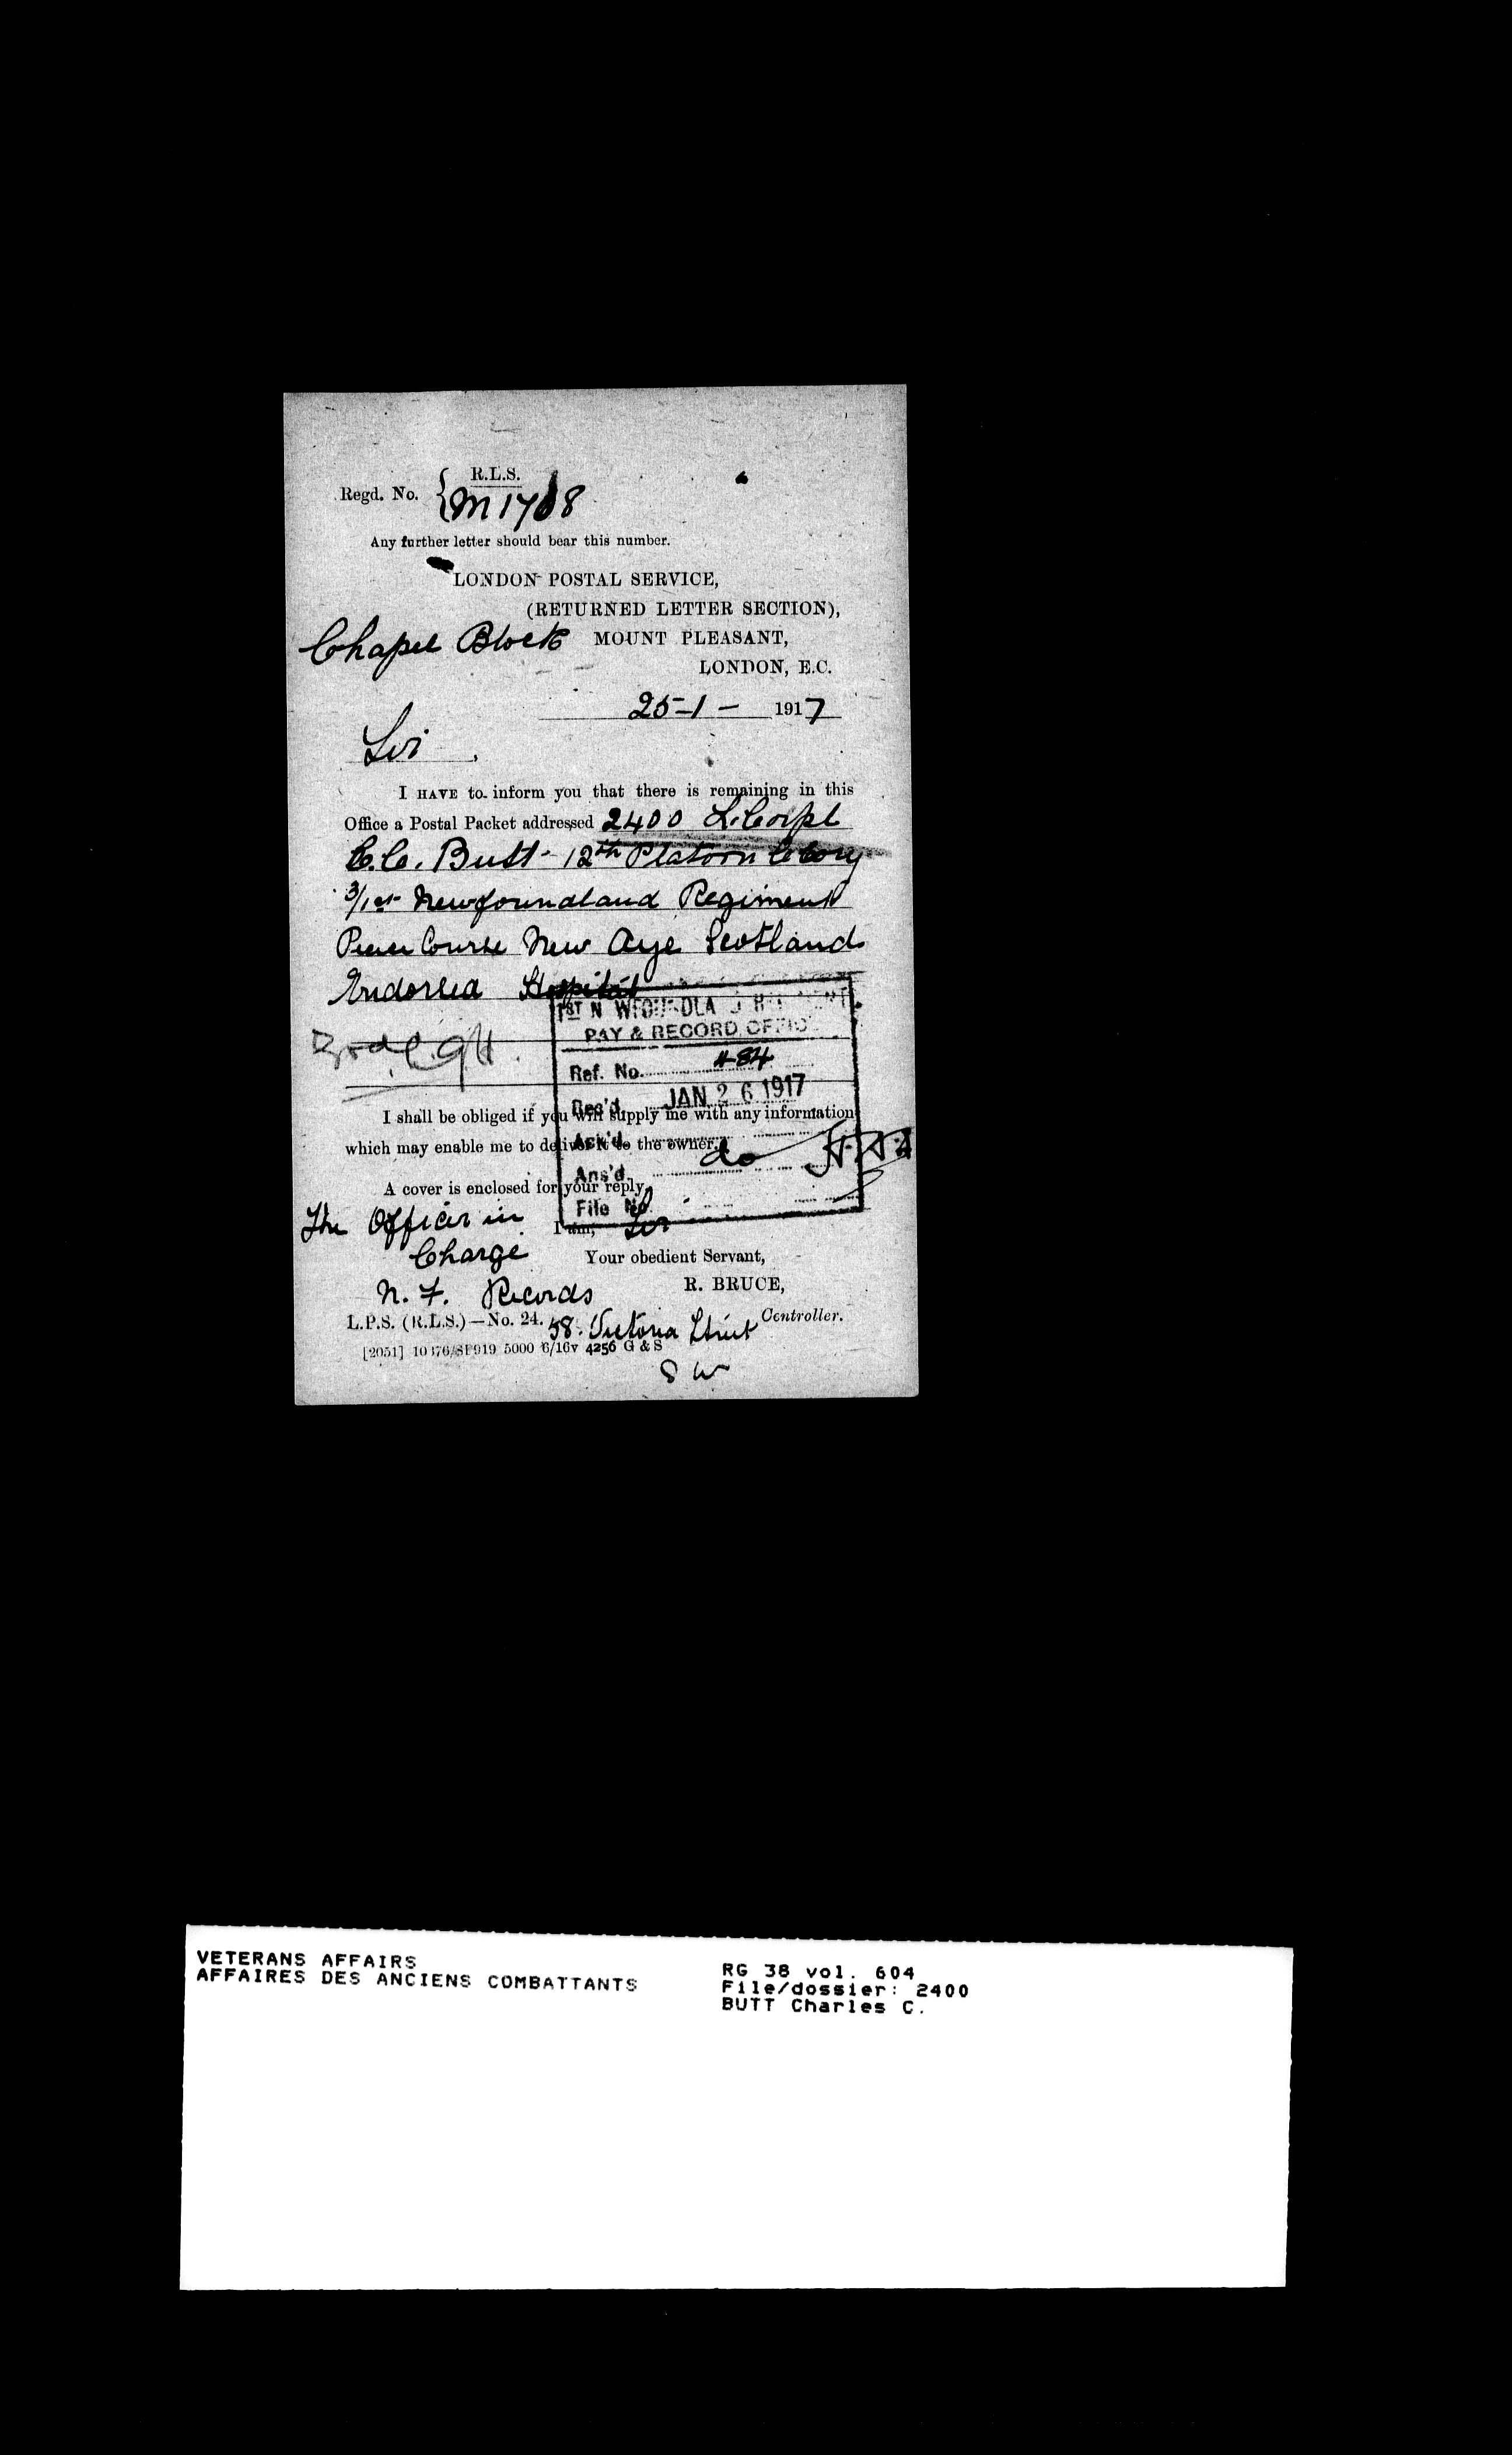 R.L.S.
Regd. No. { M 1708
Any further letter should bear this number.
LONDON POSTAL SERVICE,
(RETURNED LETTER SECTION),
Chapel Block MOUNT PLEASANT,
LONDON, E.C.
25-1- 1917
Sir,
I HAVE to inform you that there is remaining in this
Office a Postal Packet addressed 2400 L. Corpl
C.C. Butt 12th Platoon C Coy
3/1st Newfoundland Regiment
Course New Aye Scotland
Endorsed Hospital
1ST NEWFOUNDLAND REGIMENT
PAY & RECORD OFFICE
Ref. No. 484
Rec'd JAN 26 1917
I shall be obliged if you will supply me with any information
which may enable me to deliver it to the owner.
Ack'd
do
Ans'd
A cover is enclosed for your reply.
File No.
The Officer in I am, Sir
Charge Your obedient Servant,
N. F. Records R. BRUCE,
L.P.S. (R.L.S.)—No. 24. 58. Victoria Street Controller.
5000 6/16v 4256 G & S
S W
VETERANS AFFAIRS
AFFAIRES DES ANCIENS COMBATTANTS
RG 38 vol. 604
File/dossier: 2400
BUTT Charles C.